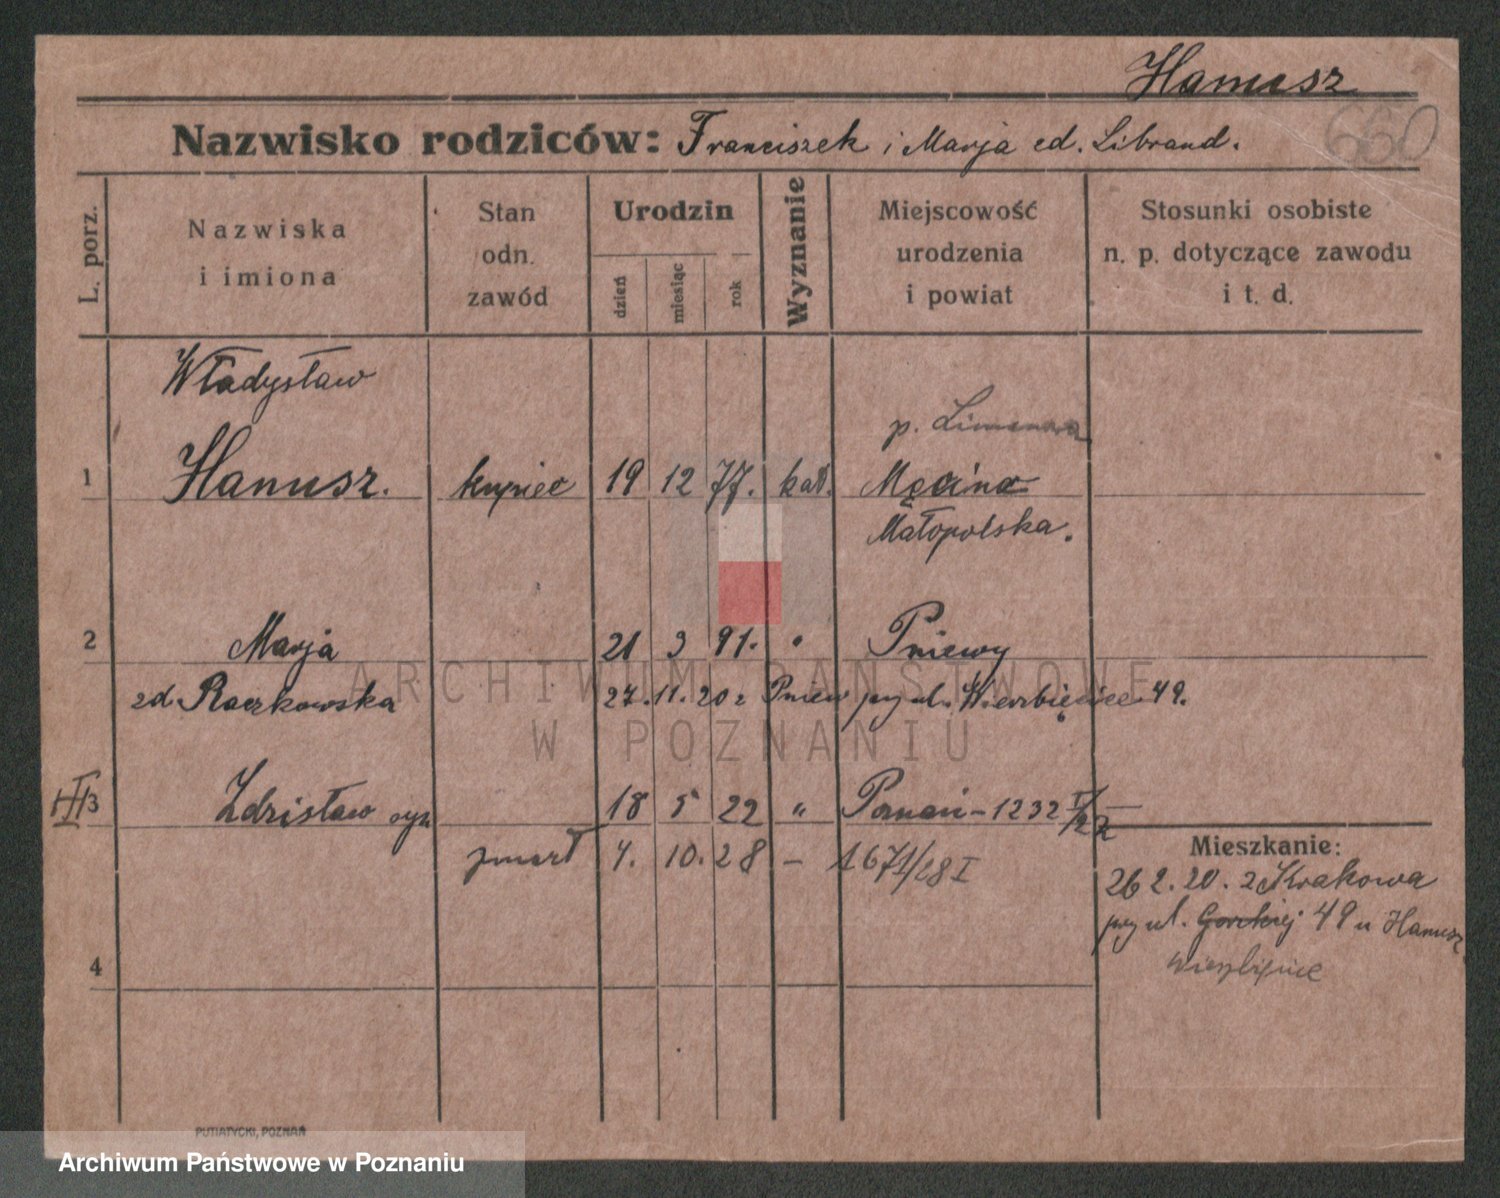 Hanusz
Nazwisko rodziców: Franciszek i Marja zd. Librand.
660
L. porz.
Nazwiska
i imiona
Stan
odn.
zawód
Urodzin
dzień
miesiąc
rok
Wyznanie
Miejscowość
urodzenia
i powiat
Stosunki osobiste
n. p. dotyczące zawodu
i t. d.
Władysław
p. Limanowa
1 Hanusz. kupiec 19 12 77. kat. Męcina
Małopolska.
2 Marja 21 3 91. " Pniewy
zd Raczkowska 27.11.20 z Pniew przy ul. Wierzbięcice 49.
3 Zdzisław syn 18 5 22 " Poznań - 1232 I/22
zmarł 4. 10. 28 - 1671/28 I
Mieszkanie:
26 2. 20. z Krakowa
przy ul. Gorckiej 49 u Hanusz
Wierzbięcice
4
ARCHIWUM PAŃSTWOWE
W POZNANIU
PUTIATYCKI, POZNAŃ
Archiwum Państwowe w Poznaniu